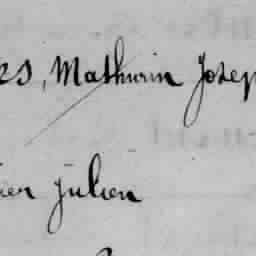 es, Mathurin Josep
ien Julien